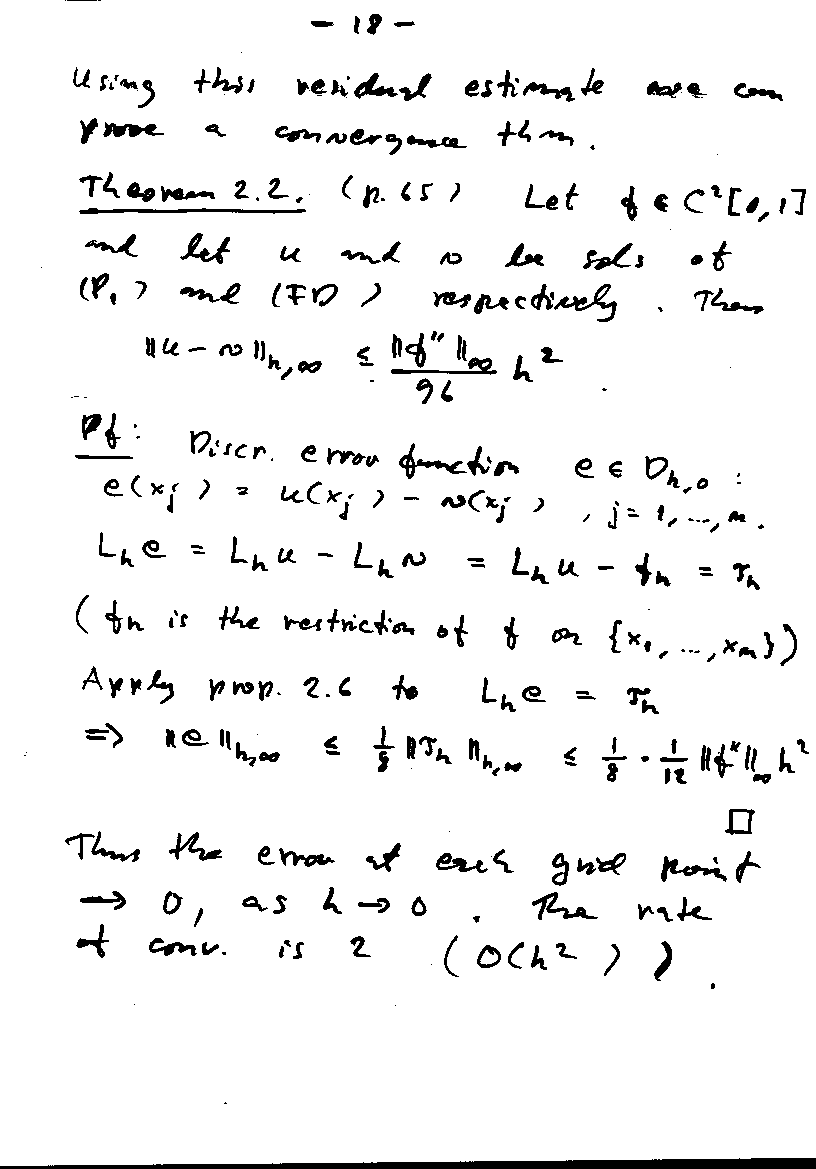 - 18 -
Using this residual estimate one can
prove a convergence thm.
Theorem 2.2. (p. 65) Let f ∈ C²[0,1]
and let u and v be sols of
(P₁) and (FD) respectively. Then
‖u - v‖ₕ,∞ ≤ ‖f″‖∞/96 h².
Pf: Discr. error function e ∈ Dₕ,₀ :
e(xⱼ) = u(xⱼ) - v(xⱼ), j = 1, ..., n.
Lₕe = Lₕu - Lₕv = Lₕu - fₕ = τₕ
(fₕ is the restriction of f on {x₁, ..., xₙ})
Apply prop. 2.6 to Lₕe = τₕ
=> ‖e‖ₕ,∞ ≤ 1/8 ‖τₕ‖ₕ,∞ ≤ 1/8 · 1/12 ‖f″‖∞ h²
□
Thus the error at each grid point
→ 0, as h → 0. The rate
of conv. is 2 (O(h²)).